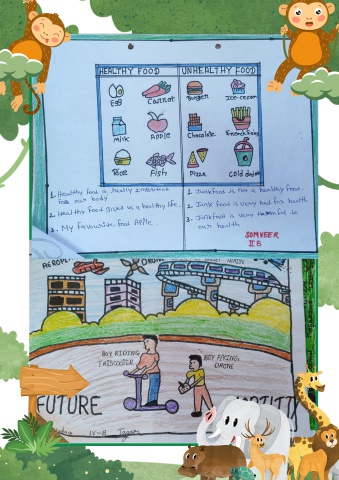 HEALTHY FOOD
UNHEALTHY FOOD
Egg
Carrot
Burger
Ice-cream
Milk
Apple
Chocolate
French Fries
Rice
Fish
Pizza
Cold drink
1. Healthy food is really important
for our body
2. Healthy food gives us a healthy life.
3. My favourite food Apple.
1. Junkfood is not a healthy food.
2. Junk food is very bad for health
3. Junkfood is very harmful to
our health
SOMVEER
II B
BOY RIDING
BOY FLYING
DRONE
FUTURE
IV-B